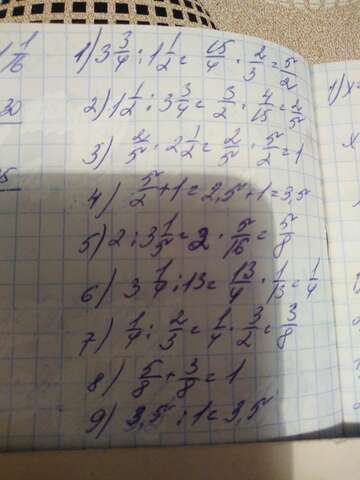 1/16
1) 3 3/4 : 1 1/2 = 15/4 · 2/3 = 5/2
30
2) 1 1/2 : 3 3/4 = 3/2 · 4/15 = 2/5
3) 2/5 · 2 1/2 = 2/5 · 5/2 = 1
4) 5/2 + 1 = 2,5 + 1 = 3,5
5) 2 : 3 1/5 = 2 · 5/16 = 5/8
6) 3 1/4 : 13 = 13/4 · 1/13 = 1/4
7) 1/4 : 2/3 = 1/4 · 3/2 = 3/8
8) 5/8 + 3/8 = 1
9) 3,5 : 1 = 3,5
1) x
x